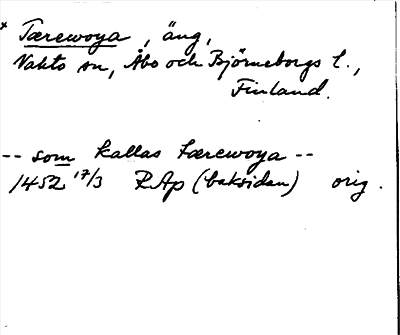 * Tærewoya, äng,
Vakto sn, Åbo och Björneborgs l.,
Finland.
-- som kallas tærewoya --
1452 17/3 RAp (baksidan) orig.